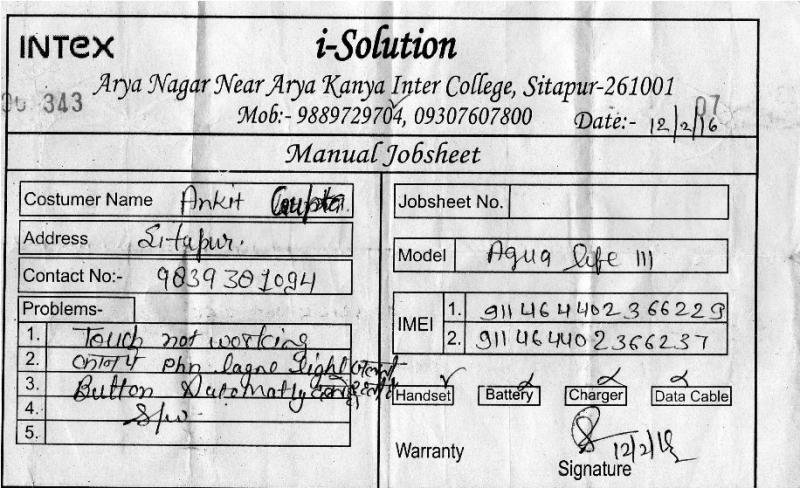 INTEX i-Solution
Arya Nagar Near Arya Kanya Inter College, Sitapur-261001
343
07
Mob:- 9889729704, 09307607800 Date:- 12/2/16
Manual Jobsheet
Costumer Name Ankit Gupta
Address Sitapur.
Contact No:- 9839381094
Problems-
1. Touch not working
2. phn lagne light
3. Button
4. S/w
5.
Jobsheet No.
Model Aqua life III
IMEI
1. 911464402366229
2. 911464402366237
Handset Battery Charger Data Cable
Warranty
12/2/16
Signature